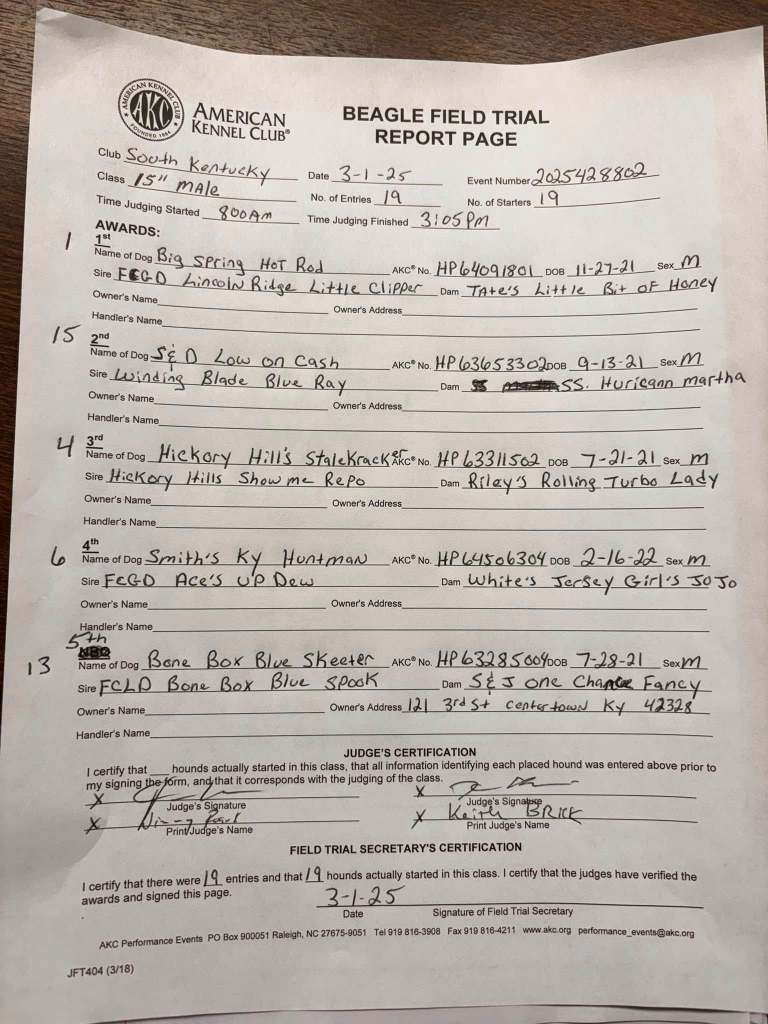 AMERICAN KENNEL CLUB
AKC
FOUNDED 1884
AMERICAN
KENNEL CLUB®
BEAGLE FIELD TRIAL
REPORT PAGE
Club South Kentucky Date 3-1-25 Event Number 2025428802
Class 15" MAle No. of Entries 19 No. of Starters 19
Time Judging Started 800Am Time Judging Finished 3:05pm
AWARDS:
1 1st
Name of Dog Big Spring Hot Rod AKC® No. HP64091801 DOB 11-27-21 Sex M
Sire FCGD Lincoln Ridge Little Clipper Dam TAte's Little Bit OF Honey
Owner's Name Owner's Address
Handler's Name
15 2nd
Name of Dog S&D Low on Cash AKC® No. HP63653302 DOB 9-13-21 Sex M
Sire Winding Blade Blue Ray Dam SS. Huricann martha
Owner's Name Owner's Address
Handler's Name
4 3rd
Name of Dog Hickory Hill's Stalekracker AKC® No. HP63311502 DOB 7-21-21 Sex m
Sire Hickory Hills Show me Repo Dam Riley's Rolling Turbo Lady
Owner's Name Owner's Address
Handler's Name
6 4th
Name of Dog Smith's Ky Huntman AKC® No. HP64506304 DOB 2-16-22 Sex m
Sire FCGD Ace's UP Dew Dam White's Jersey Girl's JoJo
Owner's Name Owner's Address
Handler's Name
5th
13 NBQ
Name of Dog Bone Box Blue Skeeter AKC® No. HP63285004 DOB 7-28-21 Sex m
Sire FCLD Bone Box Blue Spook Dam S&J one Chance Fancy
Owner's Name Owner's Address 121 3rd St centertown Ky 42328
Handler's Name
JUDGE'S CERTIFICATION
I certify that ___ hounds actually started in this class, that all information identifying each placed hound was entered above prior to
my signing the form, and that it corresponds with the judging of the class.
X X
Judge's Signature Judge's Signature
X X Keith BRICK
Print Judge's Name Print Judge's Name
FIELD TRIAL SECRETARY'S CERTIFICATION
I certify that there were 19 entries and that 19 hounds actually started in this class. I certify that the judges have verified the
awards and signed this page.
3-1-25
Date Signature of Field Trial Secretary
AKC Performance Events PO Box 900051 Raleigh, NC 27675-9051 Tel 919 816-3908 Fax 919 816-4211 www.akc.org performance_events@akc.org
JFT404 (3/18)